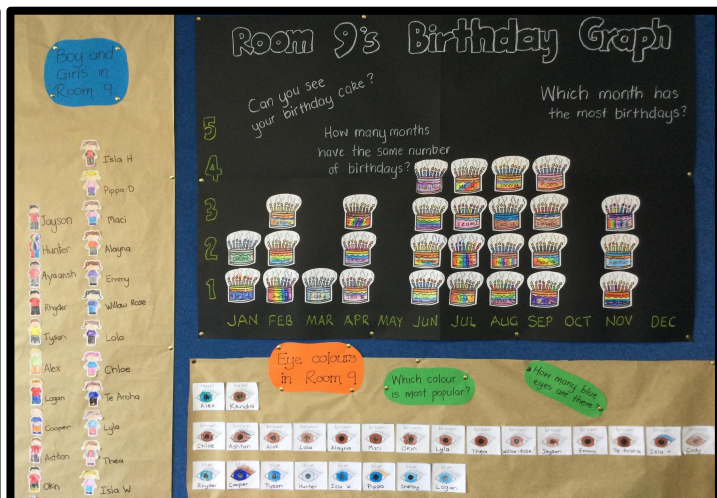 Boy and
Girls in
Room 9
Isla H
Pippa D
Jayson
Maci
Hunter
Alayna
Ayaansh
Emmy
Rhyder
Willow Rose
Tyson
Lola
Alex
Chloe
Logan
Te Aroha
Cooper
Lyla
Ashton
Thea
Okin
Isla W
Room 9's Birthday Graph
Can you see
your birthday cake?
How many months
have the same number
of birthdays?
Which month has
the most birthdays?
5
4
3
2
1
JAN FEB MAR APR MAY JUN JUL AUG SEP OCT NOV DEC
Eye colours
in Room 9
Which colour
is most popular?
How many blue
eyes are there?
Alex Kendra
Chloe Ashton Lola Alayna Maci Okin Lyla Thea Willow-Rose Jayson Emmy Te Aroha Isla H Cody
Rhyder Cooper Tyson Hunter Isla W Pippa Shelby Logan